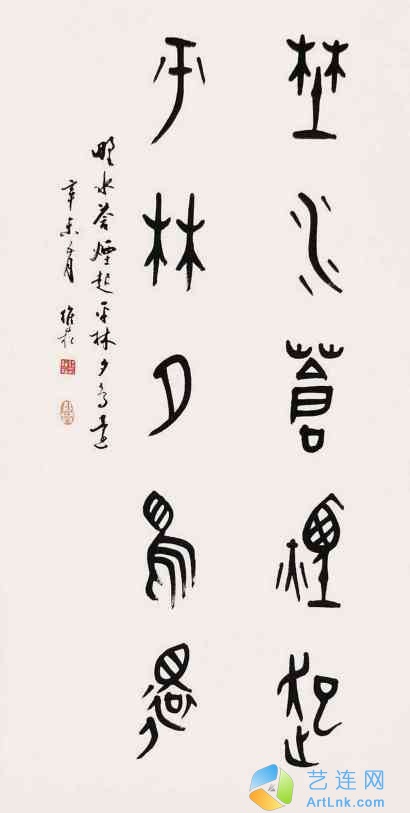 埜水蒼煙起
平林夕鳥還
野水蒼煙起平林夕鳥還
辛未
艺连网
ArtLnk.com